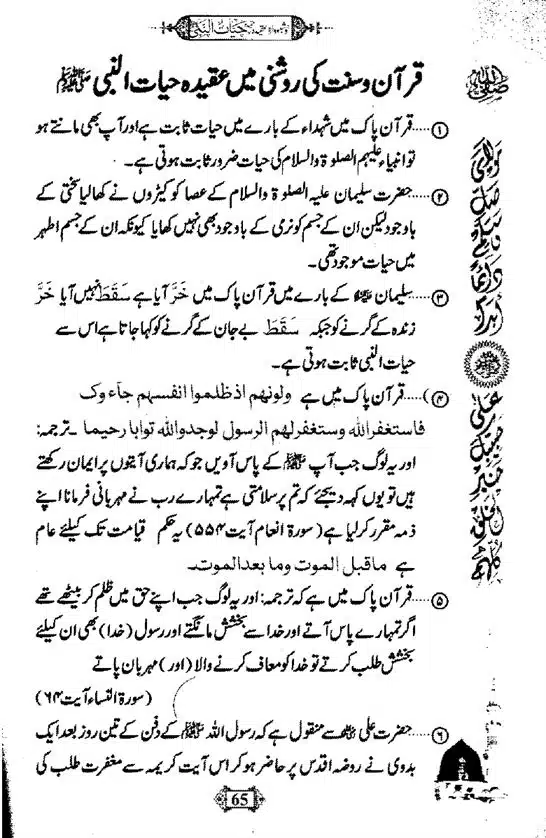 حیات النبی
قرآن و سنت کی روشنی میں عقیدہ حیات النبی ﷺ
۱.....قرآن پاک میں شہداء کے بارے میں حیات ثابت ہے اور آپ بھی مانتے ہو
تو انبیاء علیہم الصلوۃ والسلام کی حیات ضرور ثابت ہوتی ہے۔
۲.....حضرت سلیمان علیہ الصلوۃ والسلام کے عصا کو کیڑوں نے کھا لیا سختی کے
باوجود لیکن ان کے جسم کو نرمی کے باوجود بھی نہیں کھایا کیونکہ ان کے جسم اطہر
میں حیات موجود تھی۔
۳.....سلیمان کے بارے میں قرآن پاک میں خَرَّ آیا ہے سَقَطَ نہیں آیا خَرَّ
زندہ کے گرنے کو جبکہ سَقَطَ بے جان کے گرنے کو کہا جاتا ہے اس سے
حیات النبی ثابت ہوتی ہے۔
۴.....قرآن پاک میں ہے ولونهم اذظلموا انفسهم جآءوک
فاستغفرالله وستغفرلهم الرسول لوجدوالله توابا رحیما ۔ترجمہ:
اور یہ لوگ جب آپ ﷺ کے پاس آویں جو کہ ہماری آیتوں پر ایمان رکھتے
ہیں تو یوں کہہ دیجئے کہ تم پر سلامتی ہے تمہارے رب نے مہربانی فرمانا اپنے
ذمہ مقرر کر لیا ہے (سورۃ انعام آیت ۵۵۴) یہ حکم قیامت تک کیلئے عام
ہے ماقبل الموت وما بعدالموت۔
۵.....قرآن پاک میں ہے کہ ترجمہ: اور یہ لوگ جب اپنے حق میں ظلم کر بیٹھے تھے
اگر تمہارے پاس آتے اور خدا سے بخشش مانگتے اور رسول (خدا) بھی ان کیلئے
بخشش طلب کرتے تو خدا کو معاف کرنے والا (اور) مہربان پاتے
(سورۃ النساء آیت ۶۴)
۶.....حضرت علی سے منقول ہے کہ رسول اللہ ﷺ کے دفن کے تین روز بعد ایک
بدوی نے روضہ اقدس پر حاضر ہو کر اس آیت کریمہ سے مغفرت طلب کی
65
ﷺ
مولای صل وسلم دائما ابدا
علی حبیبک خیر الخلق کلهم